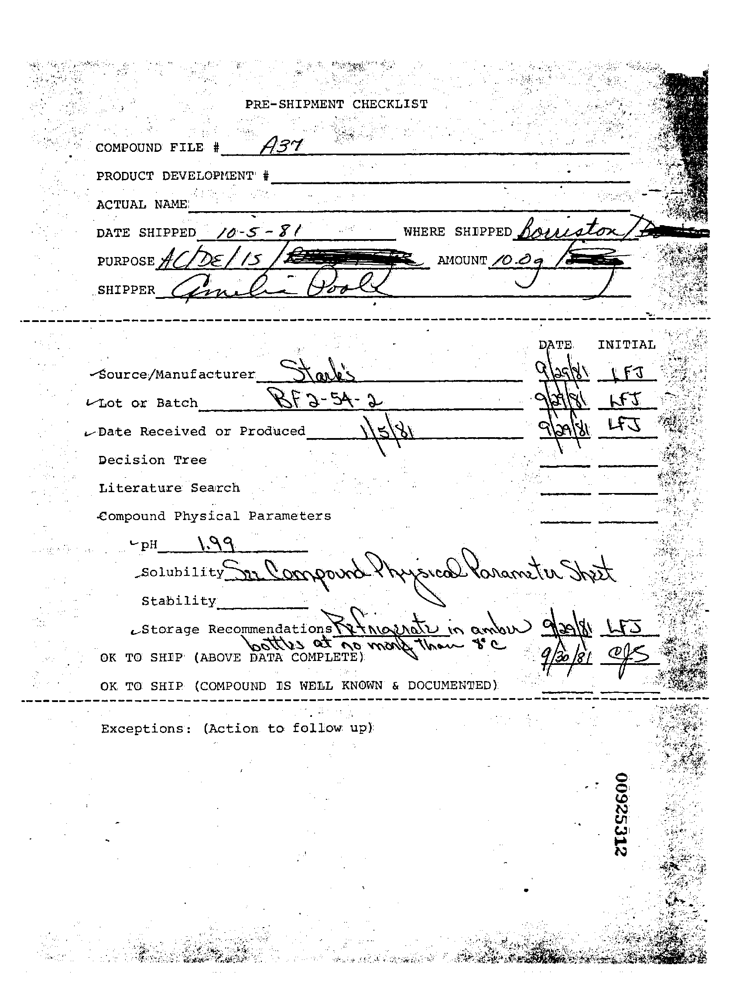 PRE-SHIPMENT CHECKLIST
COMPOUND FILE # A37
PRODUCT DEVELOPMENT #
ACTUAL NAME
DATE SHIPPED 10-5-81 WHERE SHIPPED Borriston /
PURPOSE AC/DE/IS / AMOUNT 10.0g /
SHIPPER Amelia Poole
DATE INITIAL
Source/Manufacturer Stark's 9/29/81 LFJ
Lot or Batch BF2-54-2 9/29/81 LFJ
Date Received or Produced 1/5/81 9/29/81 LFJ
Decision Tree
Literature Search
Compound Physical Parameters
pH 1.99
Solubility See Compound Physical Parameter Sheet
Stability
Storage Recommendations Refrigerate in amber 9/29/81 LFJ
bottles at no more than 8°C
OK TO SHIP (ABOVE DATA COMPLETE) 9/30/81 CJS
OK TO SHIP (COMPOUND IS WELL KNOWN & DOCUMENTED)
Exceptions: (Action to follow up)
00925312